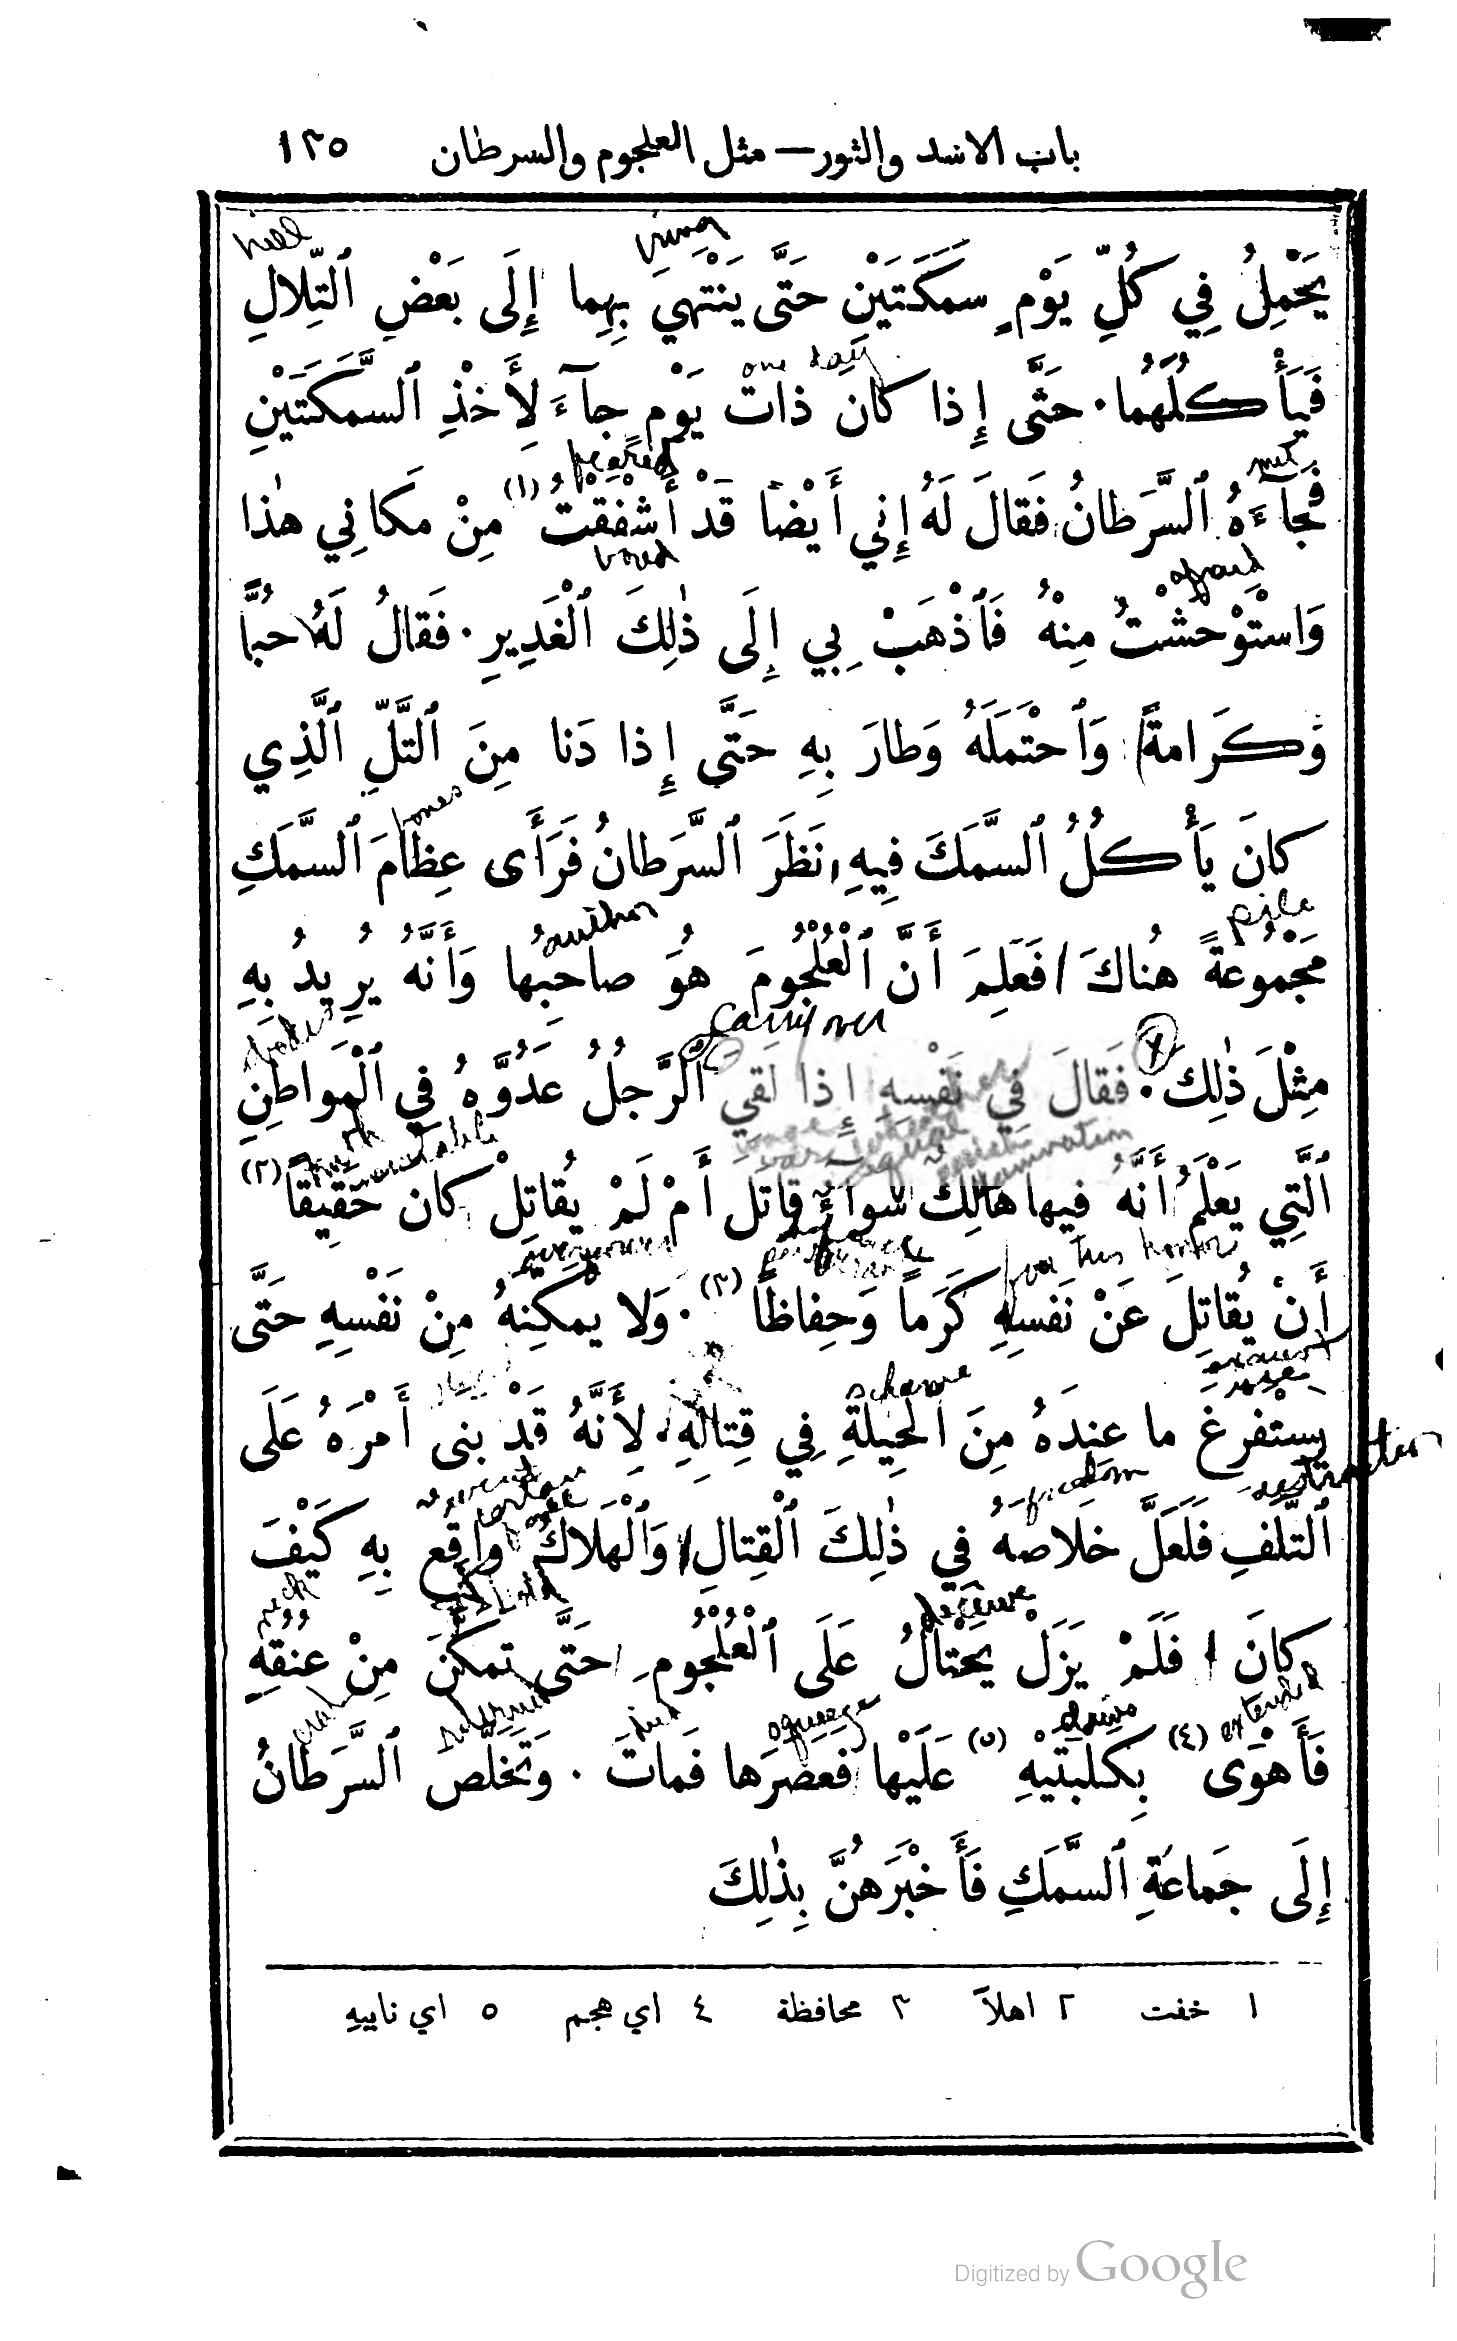 باب الاسد والثور — مثل العلجوم والسرطان ١٣٥
hill
bring
يَحْمِلُ فِي كُلِّ يَوْمٍ سَمَكَتَيْنِ حَتَّى يَنْتَهِيَ بِهِما إِلَى بَعْضِ ٱلتِّلالِ
one day
فَيَأْكُلُهُما . حَتَّى إِذا كانَ ذاتَ يَوْمٍ جآءَ لِأَخْذِ ٱلسَّمَكَتَيْنِ
feared
met
فَجآءَهُ ٱلسَّرَطانُ فَقالَ لَهُ إِنِي أَيْضاً قَدْ أَشْفَقْتُ (١) مِنْ مَكانِي هٰذا
bored
afraid
وَاسْتَوْحَشْتُ مِنْهُ فَٱذْهَبْ بِي إِلَى ذٰلِكَ ٱلْغَدِيرِ . فَقالُ لَهُ حُبًّا
وَكَرَامةً وَٱحْتَمَلَهُ وَطارَ بِهِ حَتَّى إِذا دَنا مِنَ ٱلتَّلِّ ٱلَّذِي
bones
كانَ يَأْكُلُ ٱلسَّمَكَ فِيهِ نَظَرَ ٱلسَّرَطانُ فَرَأَى عِظامَ ٱلسَّمَكِ
author
مَجْمُوعَةً هُناكَ فَعَلِمَ أَنَّ ٱلْعُلْجُومَ هُوَ صاحِبُها وَأَنَّهُ يُرِيدُ بِهِ
مِثْلَ ذٰلِكَ . فَقالَ فِي نَفْسِهِ إِذا لَقِيَ ٱلرَّجُلُ عَدُوَّهُ فِي ٱلْمَواطِنِ
ٱلَّتِي يَعْلَمُ أَنَّهُ فِيها هالِكٌ سَوآءٌ قاتَلَ أَمْ لَمْ يُقاتِلْ كانَ حَقِيقاً (٢)
for this honor
أَنْ يُقاتِلَ عَنْ نَفْسِهِ كَرَماً وَحِفاظاً (٣) . وَلا يُمْكِنُهُ مِنْ نَفْسِهِ حَتَّى
scheme
يَسْتَفْرِغَ ما عِنْدَهُ مِنَ ٱلْحِيلَةِ فِي قِتالِهِ لِأَنَّهُ قَدْ بَنَى أَمْرَهُ عَلَى
freedom
ٱلتَّلَفِ فَلَعَلَّ خَلاصَهُ فِي ذٰلِكَ ٱلْقِتالِ وَٱلْهَلاكُ واقِعٌ بِهِ كَيْفَ
deceive
كانَ فَلَمْ يَزَلْ يَحْتالُ عَلَى ٱلْعُلْجُومِ حَتَّى تَمَكَّنَ مِنْ عُنُقِهِ
extended
squeeze
فَأَهْوَى (٤) بِكَلْبَتَيْهِ (٥) عَلَيْها فَعَصَرَها فَماتَ . وَتَخَلَّصَ ٱلسَّرَطانُ
إِلَى جَماعَةِ ٱلسَّمَكِ فَأَخْبَرَهُنَّ بِذٰلِكَ
١ خفت ٢ اهلاً ٣ محافظة ٤ اي هجم ٥ اي نابيهِ
Digitized by Google